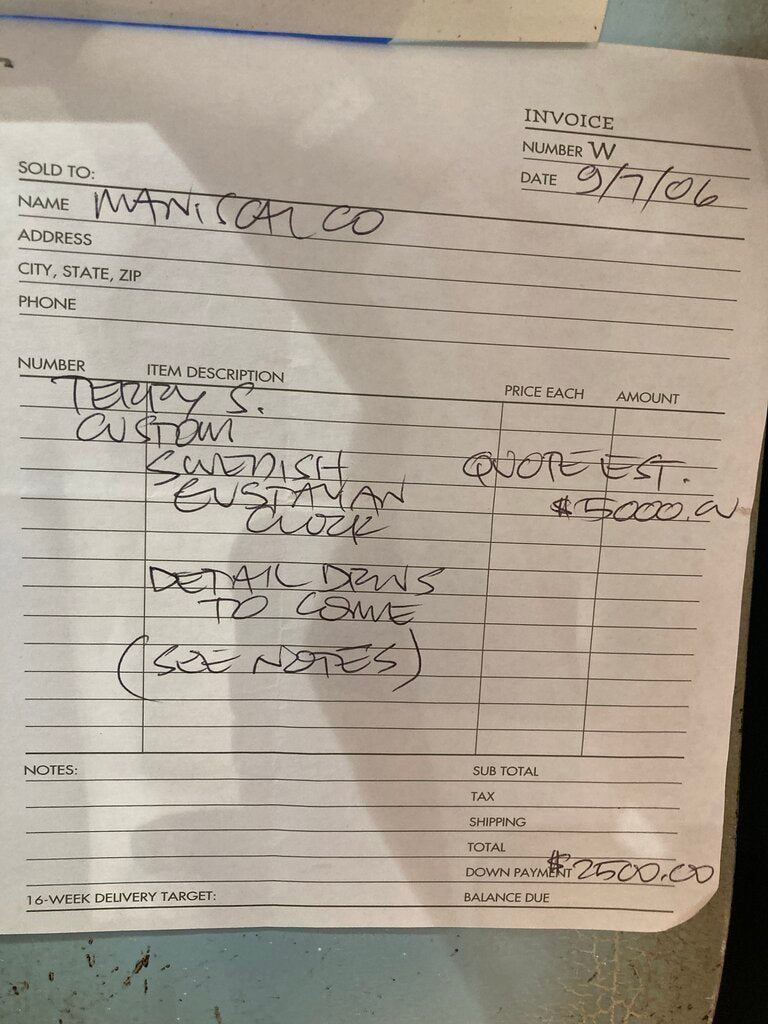 INVOICE
NUMBER W
DATE 9/7/06
SOLD TO:
NAME MANISCALCO
ADDRESS
CITY, STATE, ZIP
PHONE
NUMBER ITEM DESCRIPTION PRICE EACH AMOUNT
TERRY S.
CUSTOM
SWEDISH QUOTE EST.
GUSTAVIAN $5000.00
CLOCK
DETAIL DRWS
TO COME
(SEE NOTES)
NOTES:
SUB TOTAL
TAX
SHIPPING
TOTAL
DOWN PAYMENT $2500.00
16-WEEK DELIVERY TARGET: BALANCE DUE